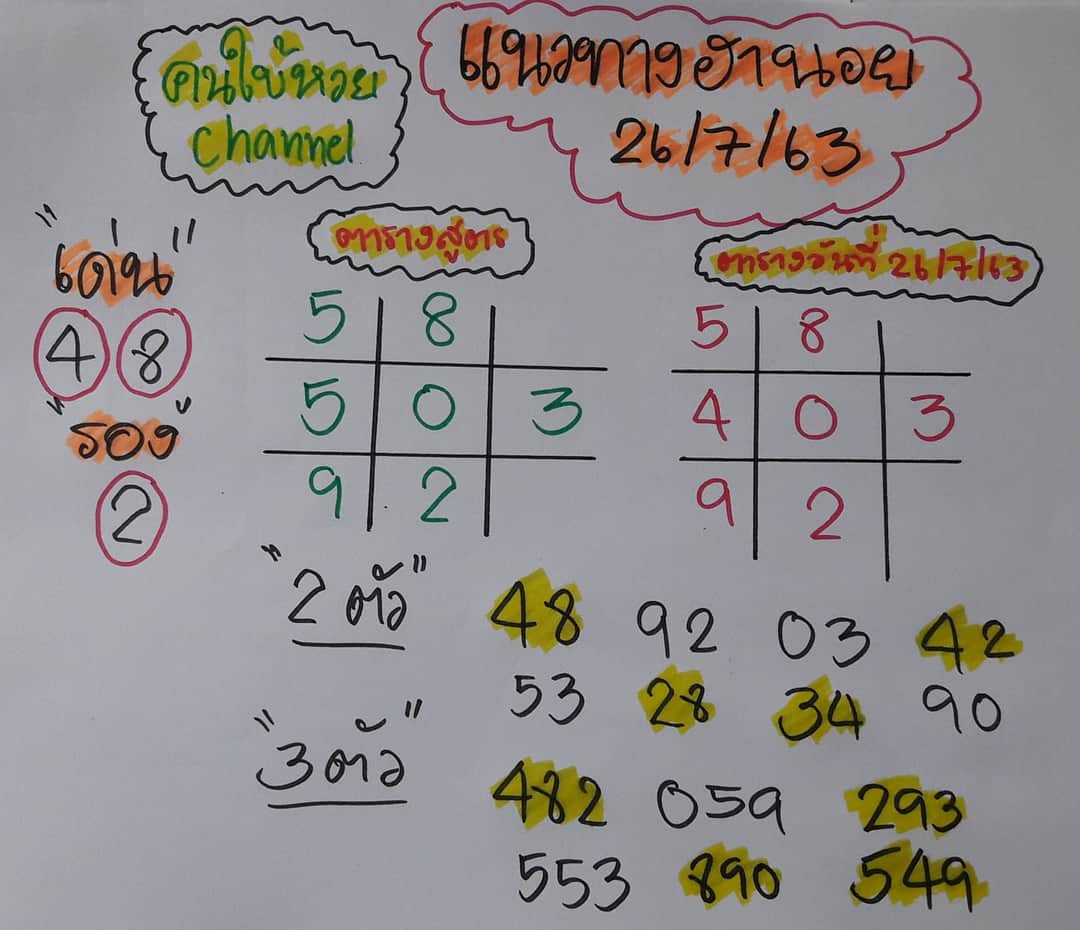 คนใบ้หวย
Channel
แนวทางฮานอย
26/7/63
"เด่น"
4 8
"รอง"
2
ตารางสูตร
5 8
5 0 3
9 2
ตารางวันที่ 26/7/63
5 8
4 0 3
9 2
"2 ตัว"
48 92 03 42
53 28 34 90
"3 ตัว"
482 059 293
553 890 549